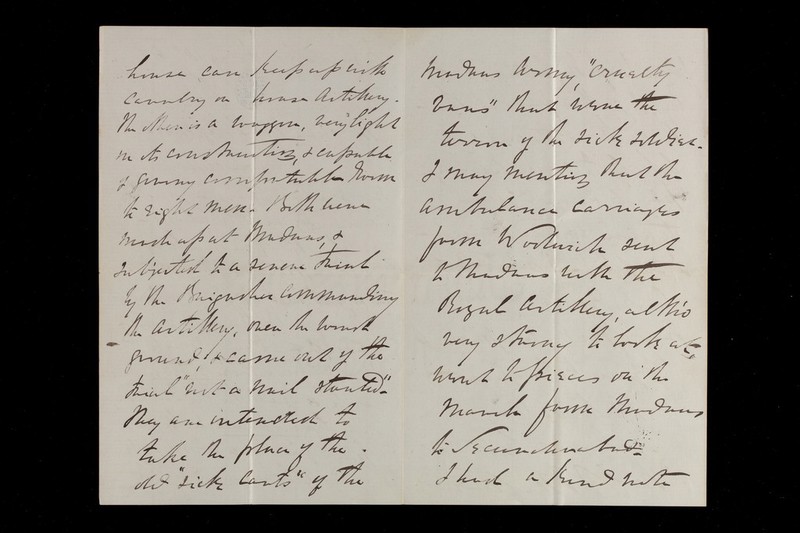 horse can keep up with
cavalry or horse Artillery.
The other is a waggon, very light
in its construction, & capable
of giving comfortable room
to eight men. Both were
made up at Madras, &
subjected to a severe trial
by the Brigadier Commanding
the Artillery, over the worst
ground, & came out of the
trial "not a nail started".
They are intended to
take the place of the
old "sick carts" of the
Madras Army, "cruelty
vans" that were the
terror of the sick soldier.
I may mention that the
ambulance carriages
from Woolwich sent
to Madras with the
Royal Artillery, altho
very strong to look at,
went to pieces on the
March from Madras
to Secunderabad.
I had a kind note